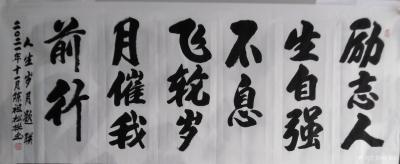 励志人
生自强
不息
飞轮岁
月催我
前行
人生岁月
二〇二一年十一月陈祖松书